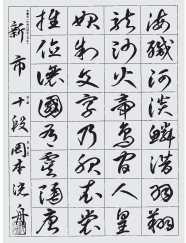 海鹹河淡鱗潛羽翔
龍師火帝鳥官人皇
始制文字乃服衣裳
推位讓國有虞陶唐
新市 十段 岡本 舟